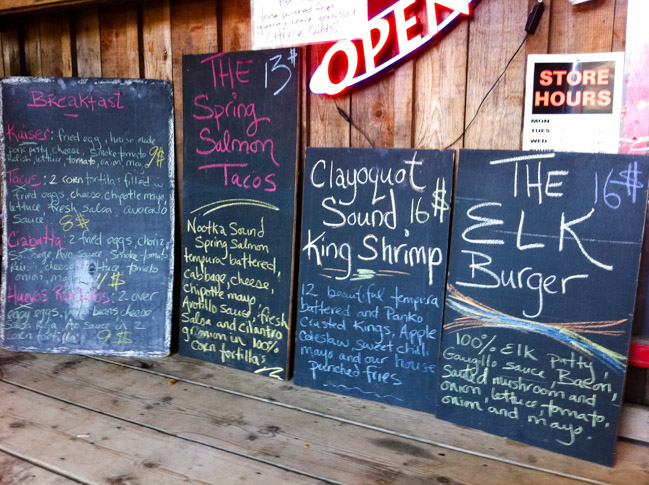 Breakfast
Kaiser: fried egg, house made
pork patty, cheese, smoke tomato
relish, lettuce, tomato, onion, mayo 9$
Tacos: 2 corn tortillas filled w
fried eggs, cheese, chipotle mayo,
lettuce fresh salsa, avocado
sauce 8$
Ciabatta: 2 fried eggs, chorizo
sauce, smoke tomato
cheese, tomato
onion,
Huevos 2 over
easy eggs, beans cheese
Salsa sauce in 2
corn tortillas 9$
THE 13$
Spring
Salmon
Tacos
Nootka Sound
Spring Salmon
tempura battered,
cabbage, cheese,
chipotle mayo,
sauce, fresh
Salsa and cilantro
onion in 100%
corn tortillas
OPEN
Clayoquot
Sound 16$
King Shrimp
12 beautiful tempura
battered and Panko
crusted Kings, Apple
coleslaw, sweet chili
mayo and our house
punched fries
STORE
HOURS
MON
TUES
WED
THE 16$
ELK
Burger
100% Elk patty,
Guajillo sauce, Bacon,
Sauted mushroom and
onion, lettuce, tomato,
onion and mayo.